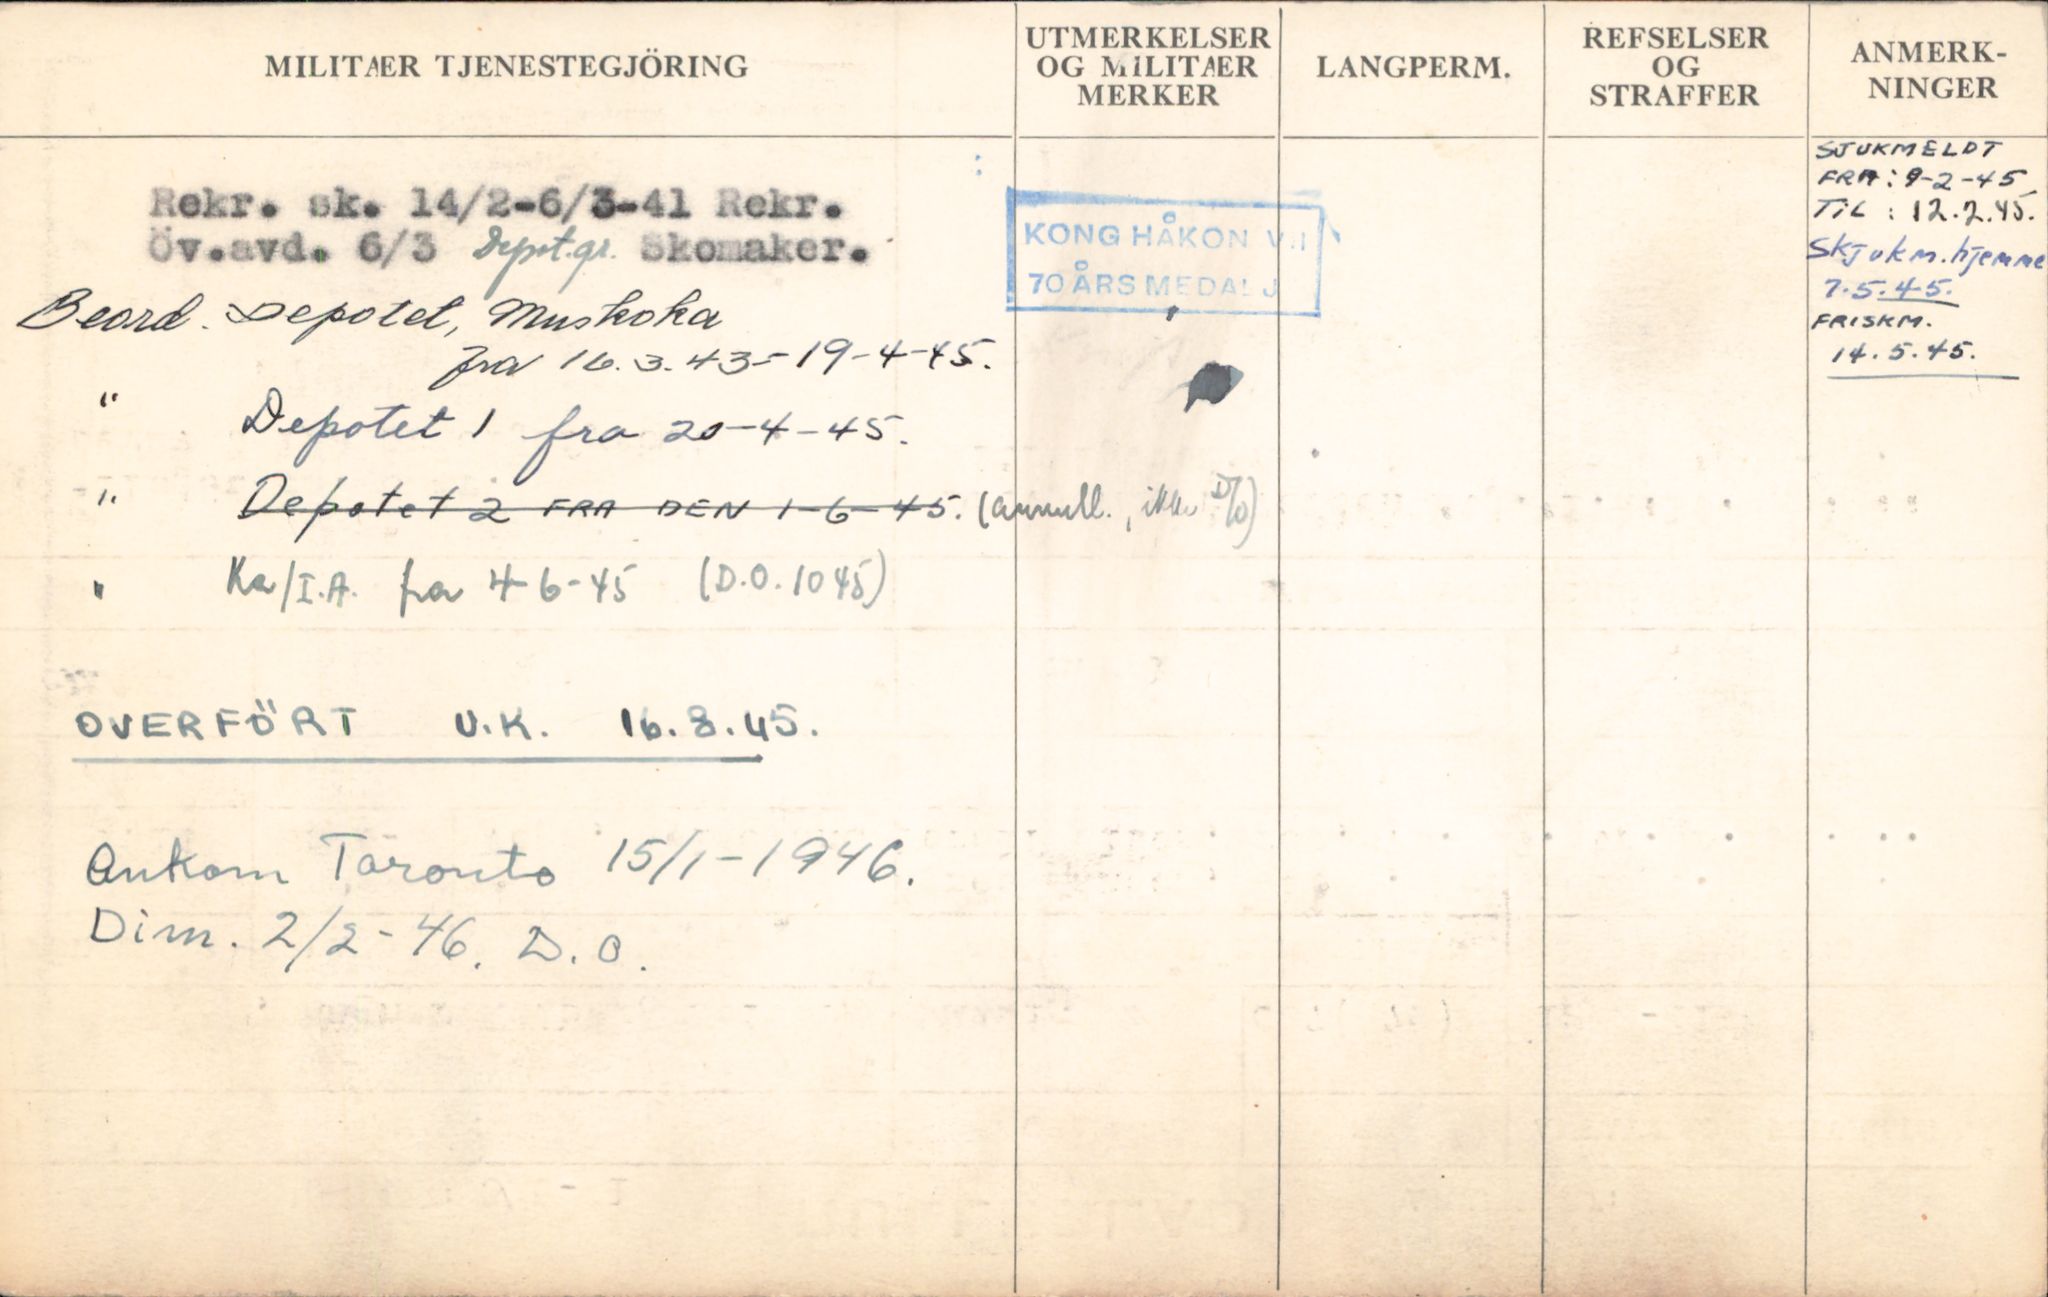 MILITÆR TJENESTEGJÖRING
UTMERKELSER
OG MILITÆR
MERKER
LANGPERM.
REFSELSER
OG
STRAFFER
ANMERK-
NINGER
Rekr. sk. 14/2-6/3-41 Rekr.
Öv.avd. 6/3 Depot.gr. Skomaker.
Beord. Depotet, Muskoka
fra 16.3.43-19-4-45.
" Depotet 1 fra 20-4-45.
" Depotet 2 FRA DEN 1-6-45. (annull., ikke D/O)
" Ka/I.A. fra 4-6-45 (D.O. 1045)
OVERFÖRT U.K. 16.8.45.
Ankom Toronto 15/1-1946.
Dim. 2/2-46. D.O.
KONG HÅKON VII
70 ÅRS MEDALJ
SJUKMELDT
FRA: 9-2-45
TIL: 12.2.45.
Skjukm. hjemme
7.5.45.
FRISKM.
14.5.45.